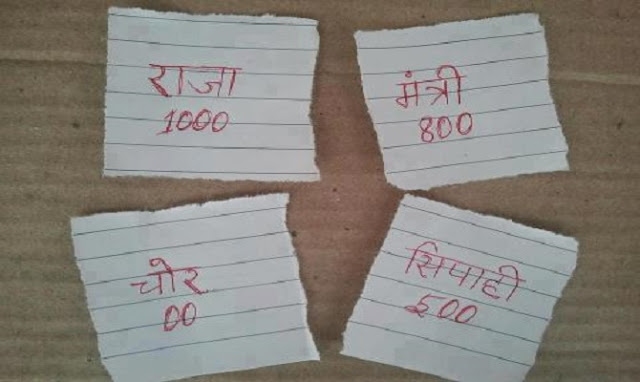 राजा
1000
मंत्री
800
चोर
00
सिपाही
६00